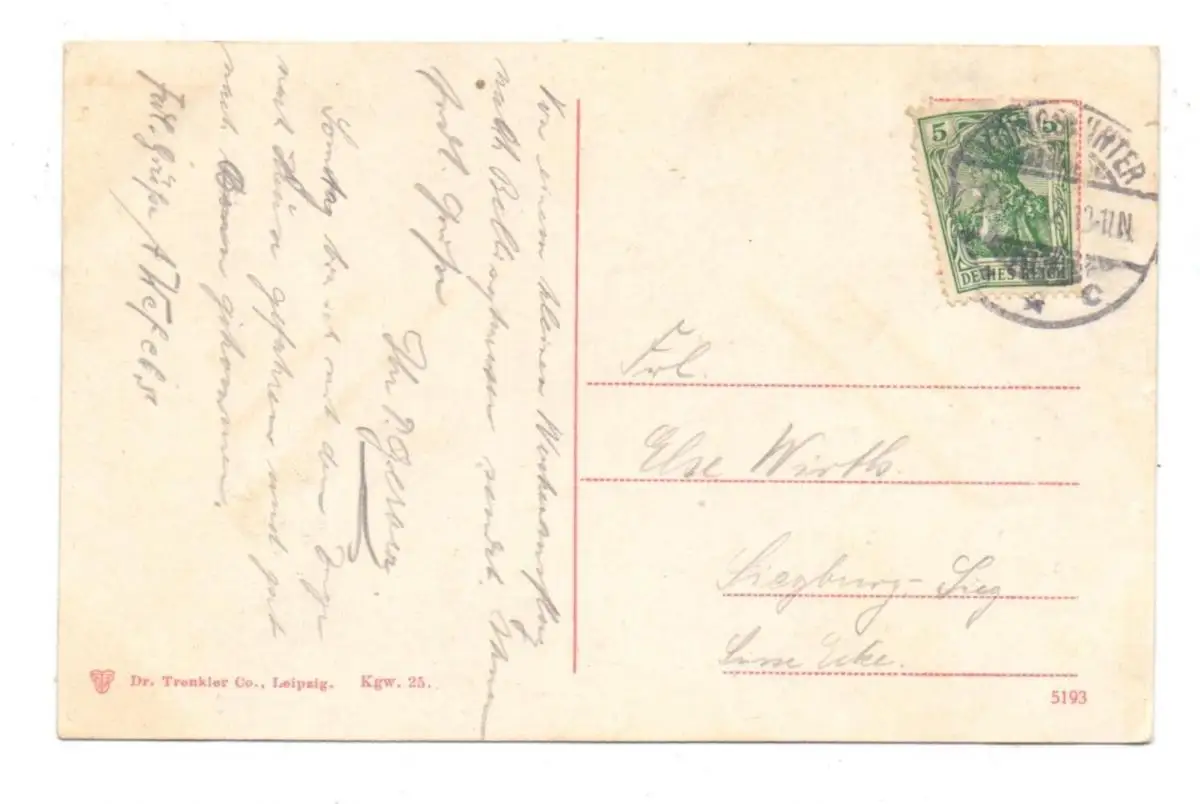 Von einem kleinen
nach sendet Ihnen
herzl. Grüße
Ihr P. Gerber
Sonntag bin ich mit dem Zuge
nach gefahren und gut
nach Bonn gekommen.
Frdl. Grüße A
5 5
DEUTSCHES REICH
KÖNIGSWINTER
10-11N.
* c
Frl.
Else Wirths.
Siegburg-Sieg
Ecke.
Dr. Trenkler Co., Leipzig. Kgw. 25.
5193